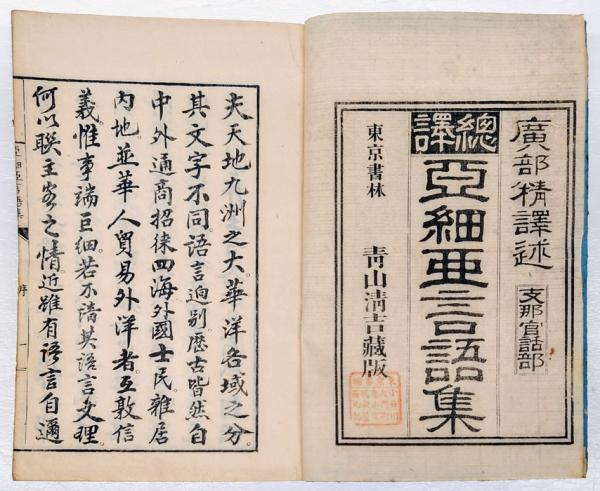 廣部精譯述
支那官話部
總譯
亞細亜言語集
東京書林
青山清吉藏版
夫天地九洲之大華洋各域之分
其文字不同語言逈别歷古皆然自
中外通商招徠四海外國士民雜居
内地並華人貿易外洋者互敦信
義惟事端巨細若不諳其語言文理
何以联主客之情近雖有語言自邇
序
一